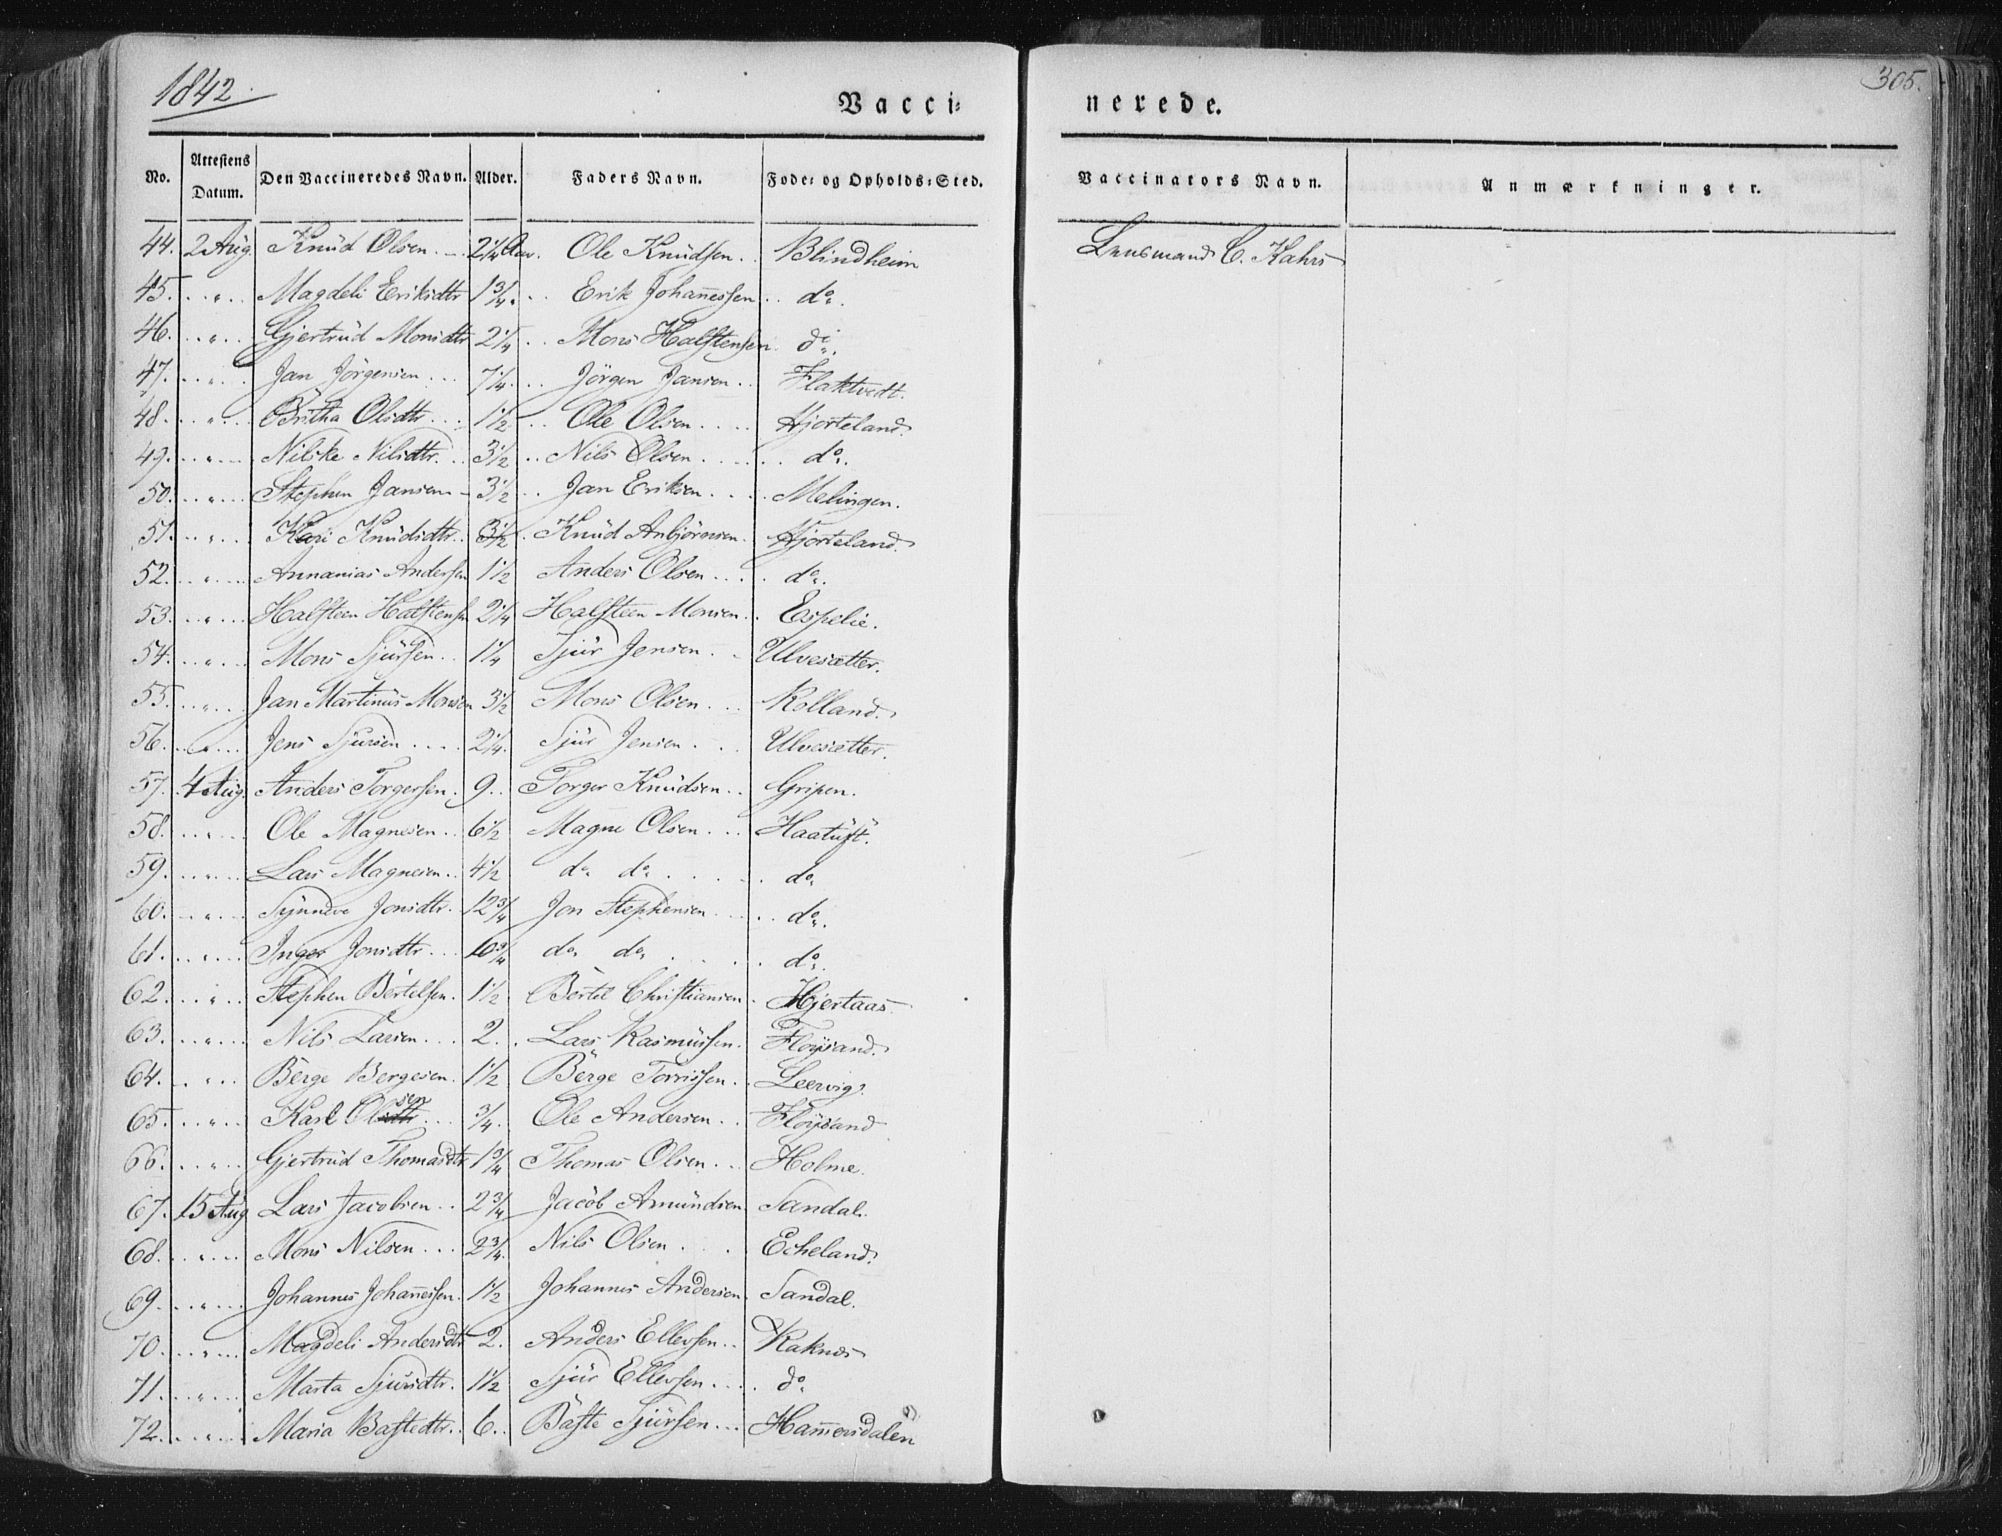 1842
305.
Vacci=
nerede.
No. Attestens Datum. Den Vaccineredes Navn. Alder. Faders Navn. Føde= og Opholds=Sted. Vaccinators Navn. Anmærkninger.
44. 2 Aug. Knud Olsen. 2 1/4 Aar. Ole Knudsen. Blindheim Lensmand C. Kahrs
45. " Magdeli Eriksdtr 1 3/4. Erik Johanessen do.
46. " Gjertrud Monsdtr 2 1/4 Mons Halstensen do.
47. " Jan Jörgensen 7 1/4. Jörgen Jansen Flaktvedt.
48. " Britha Olsdtr. 1 1/2 Ole Olsen Hjorteland.
49. " Nilske Nilsdtr. 3 1/2 Nils Olsen do.
50. " Stephen Jansen 3 1/2 Jan Eriksen Melingen.
51. " Kari Knudsdtr. 3 1/2 Knud Anbjörnsen. Hjorteland.
52. " Annanias Andersen 1 1/2 Anders Olsen do.
53. " Halsteen Halstensen 2 1/4 Halsteen Monsen Espelie.
54. " Mons Sjursen 1 1/4 Sjur Jensen Ulvesætter.
55. " Jan Martinus Monsen 3 1/2 Mons Olsen Rolland.
56. " Jens Sjursen 2 1/4. Sjur Jensen Ulvesætter.
57. 4 Aug. Anders Torgersen. 9. Torger Knudsen Gripen.
58. " Ole Magnesen 6 1/2 Magne Olsen Haatuft.
59. " Lars Magnesen 4 1/2 do do do
60. " Synneve Jonsdtr. 12 3/4 Jon Stephensen do.
61. " Inger Jonsdtr 10 3/4 do do do.
62. " Stephen Bertelsen. 1 1/2 Bertel Christiansen. Hjertaas
63. " Nils Larsen 2. Lars Rasmussen. Floysand.
64. " Berge Bergesen. 1 1/2 Berge Torrissen Leervig.
65. " Karl Olsdtr sen 3/4. Ole Andersen Floysand
66. " Gjertrud Thomasdtr 1 3/4 Thomas Olsen Holme.
67. 15 Aug Lars Jacobsen 2 3/4 Jacob Amundsen Sandal.
68. " Mons Nilsen 2 3/4. Nils Olsen Echeland.
69. " Johannes Johanessen. 1 1/2 Johannes Andersen Sandal.
70. " Magdeli Andersdtr 2. Anders Ellevsen Raknes
71. " Marta Sjursdtr. 1 1/2 Sjur Ellevsen do
72. " Maria Bastedtr. 6. Baste Sjursen Hamersdalen